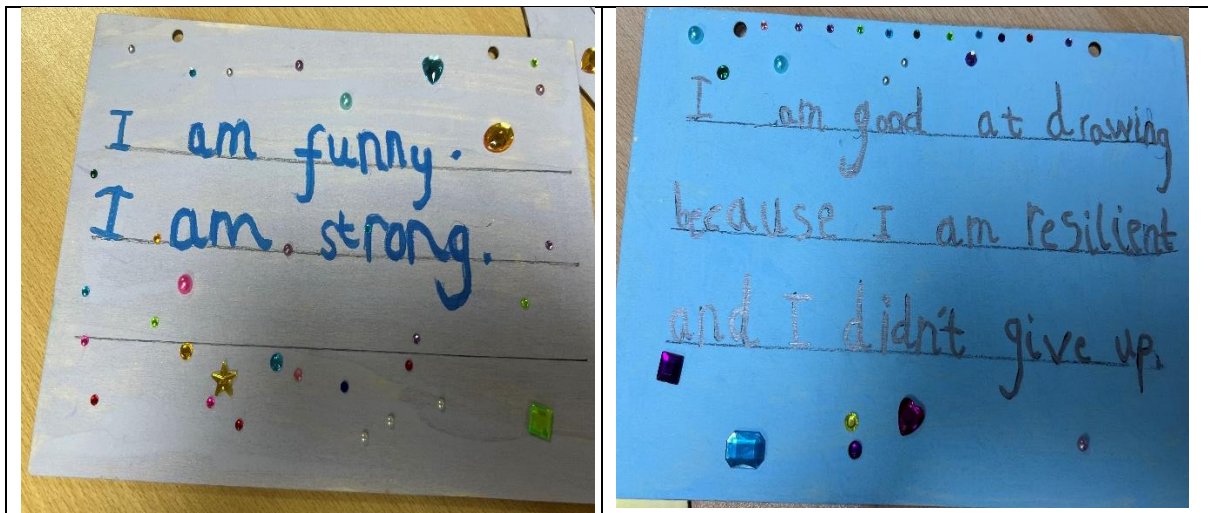 I am funny.
I am strong.
I am good at drawing
because I am resilient
and I didn't give up.